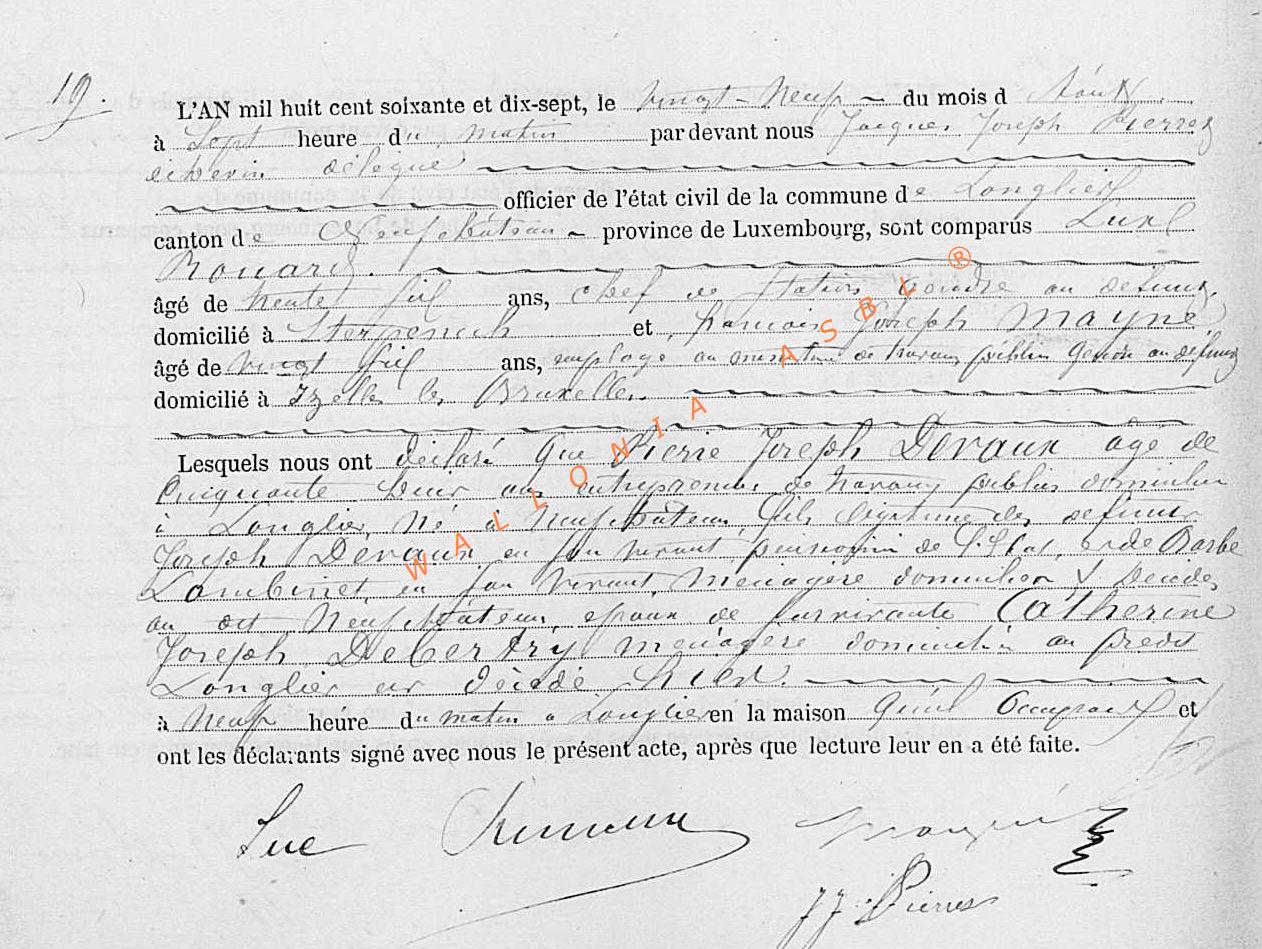 19.
L'AN mil huit cent soixante et dix-sept, le vingt-neuf du mois d Août
à Sept heure du matin par devant nous Jacques Joseph Pierret
échevin délégué
officier de l'état civil de la commune de Longlier
canton de Neufchâteau province de Luxembourg, sont comparus Luc
âgé de trente six ans, chef de station gendre au défunt,
domicilié à Sterpenich et françois Joseph Mayné
âgé de vingt six ans, employé au ministère de travaux publics Gendre au défunt
domicilié à Ixelles les Bruxelles.
Lesquels nous ont déclaré que Pierre Joseph Devaux âgé de
Cinquante deux ans entrepreneur de travaux publics domicilié
à Longlier, né à Neufchâteau, fils légitime des défunts
Joseph Devaux en son vivant pensionné de l'Etat, et de Barbe
Lambinet, en son vivant, ménagère domiciliés & décédés
au dit Neufchâteau, époux de survivante Catherine
Joseph Decertry ménagère domiciliée au prédit
Longlier est décédé hier
à neuf heure du matin à Longlier en la maison qu'il occupait et
ont les déclarants signé avec nous le présent acte, après que lecture leur en a été faite.
Luc
Mayné
J J Pierret
WALLONIA ASBL ®